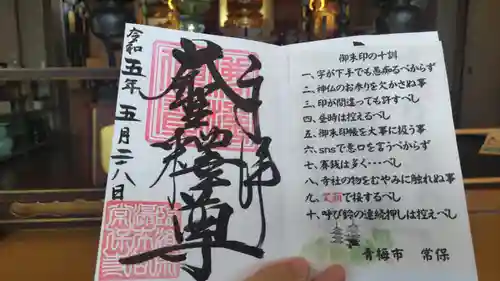 奉拝
武蔵野
釈尊
令和五年五月二八日
常保寺
御朱印の十訓
一、字が下手でも怒るべからず
二、神仏のお参りを欠かさぬ事
三、印が間違っても許すべし
四、昼時は控えるべし
五、御朱印帳を大事に扱う事
六、snsで悪口を言うべからず
七、賽銭は多く・・・べし
八、寺社の物をむやみに触れぬ事
九、笑顔で接するべし
十、呼び鈴の連続押しは控えべし
青梅市 常保